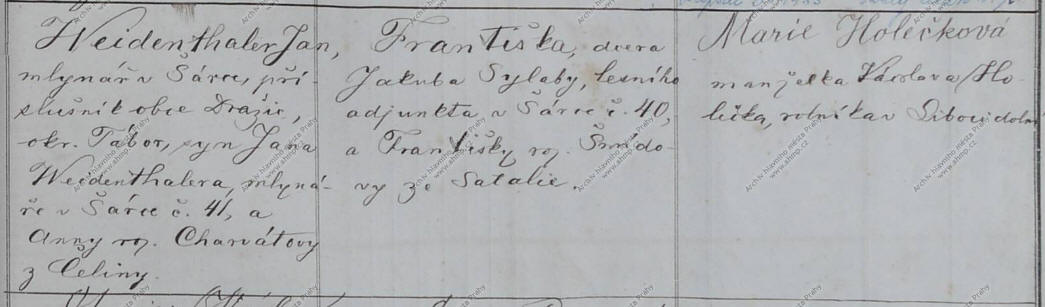 Weidenthaler Jan,
mlynář v Šárce, pří-
slušník obce Dražic,
okr. Tábor, syn Jana
Weidenthalera, mlyná-
ře v Šárce č. 41, a
Anny roz. Charvátovy
z Čeliny.
Františka, dcera
Jakuba Sylaby, lesního
adjunkta v Šárce č. 40,
a Františky roz. Šmído-
vy ze Satalic.
Marie Holečková
manželka Václava Ho-
lečka, rolníka v Liboci dolní